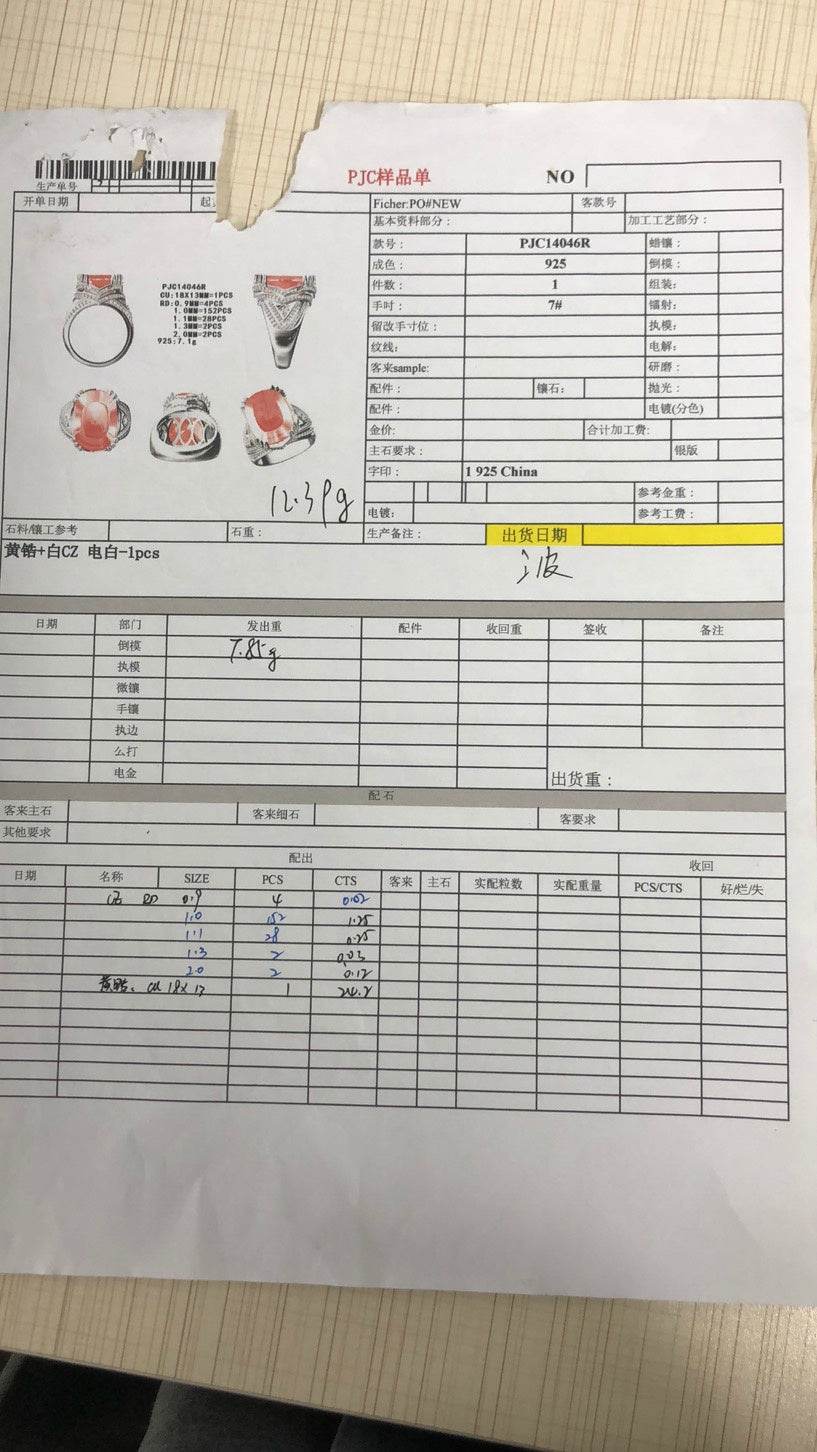 PJC样品单 NO
生产单号
开单日期 Ficher:PO#NEW 客款号
基本资料部分: 加工工艺部分:
款号: PJC14046R 蜡镶:
成色: 925 倒模:
件数: 1 组装:
手吋: 7# 镭射:
留改手寸位: 执模:
纹线: 电解:
客来sample: 研磨:
配件: 镶石: 抛光:
配件: 电镀(分色)
金价: 合计加工费:
主石要求: 银版
字印: 1 925 China
参考金重:
电镀: 参考工费:
PJC14046R
CU:18X13MM=1PCS
RD:0.9MM=4PCS
1.0MM=152PCS
1.1MM=28PCS
1.3MM=2PCS
2.0MM=2PCS
925:7.1g
12.39g
石料/镶工参考 石重: 生产备注: 出货日期
黄锆+白CZ 电白-1pcs
日期 部门 发出重 配件 收回重 签收 备注
倒模 7.85g
执模
微镶
手镶
执边
么打
电金 出货重:
配石
客来主石 客来细石 客要求
其他要求
配出 收回
日期 名称 SIZE PCS CTS 客来 主石 实配粒数 实配重量 PCS/CTS 好/烂/失
CZ RD 0.9 4 0.02
1.0 152 1.25
1.1 28 0.25
1.3 2 0.03
2.0 2 0.12
黄锆: CU 18X13 1 24.2